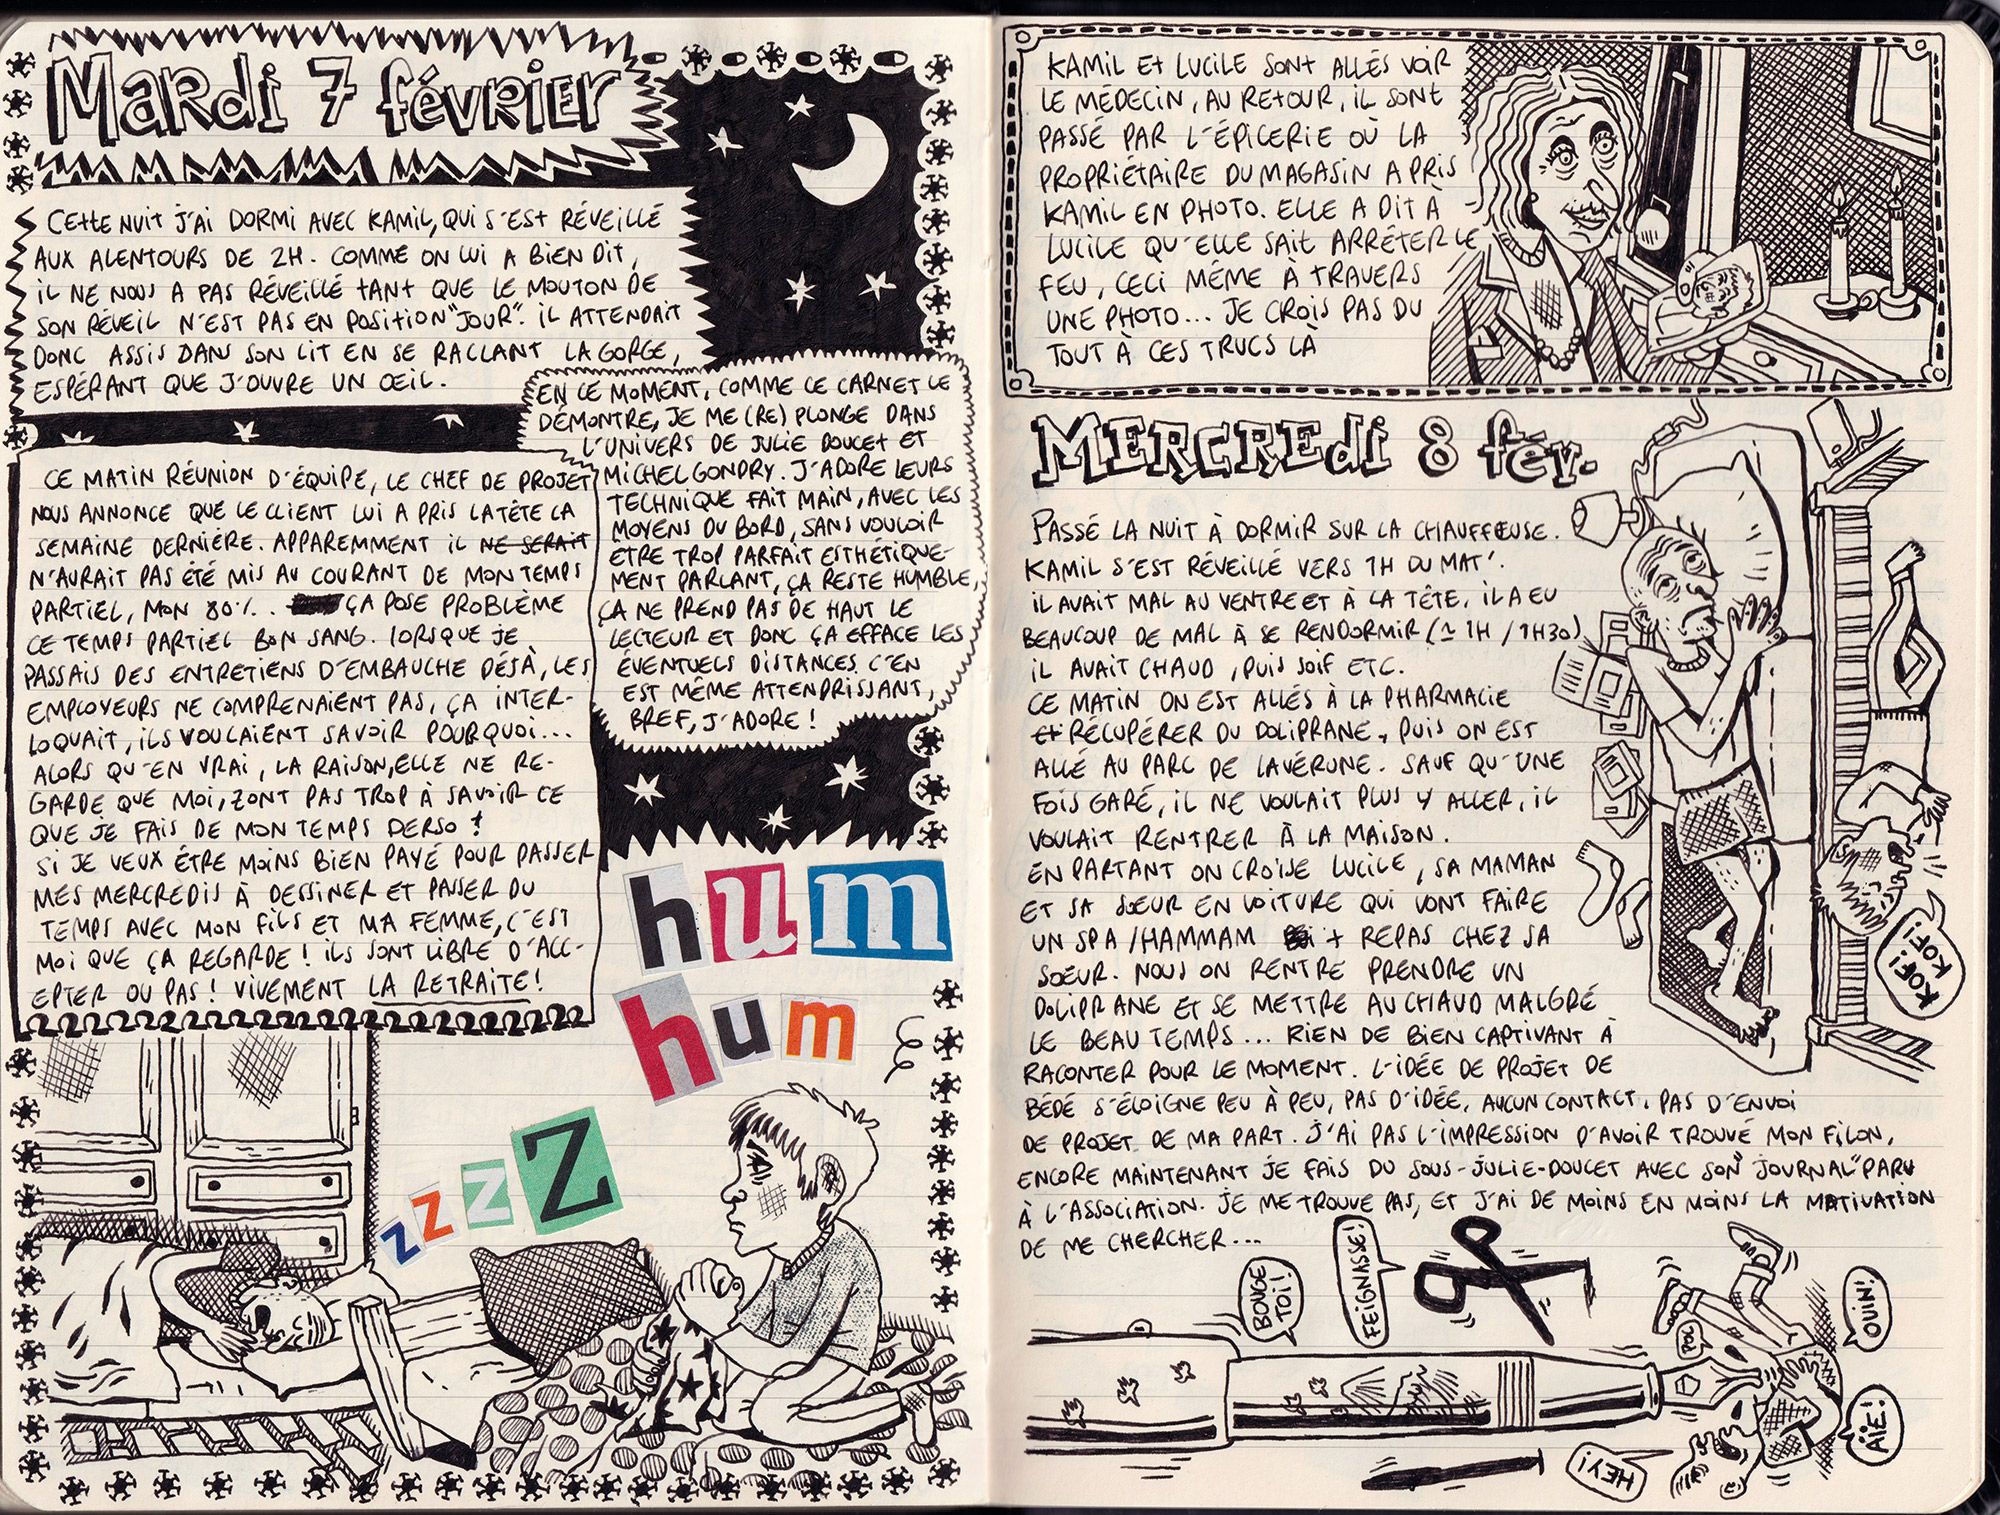 Mardi 7 février
Cette nuit j'ai dormi avec Kamil, qui s'est réveillé
aux alentours de 2h. Comme on lui a bien dit,
il ne nous a pas réveillé tant que le mouton de
son réveil n'est pas en position "jour". Il attendait
donc assis dans son lit en se raclant la gorge,
espérant que j'ouvre un œil.
En ce moment, comme ce carnet le
démontre, je me (re)plonge dans
l'univers de Julie Doucet et
Michel Gondry. J'adore leurs
technique fait main, avec les
moyens du bord, sans vouloir
etre trop parfait esthétique-
ment parlant, ça reste humble,
ça ne prend pas de haut le
lecteur et donc ça efface les
éventuels distances. C'en
est même attendrissant,
bref, j'adore !
Ce matin réunion d'équipe, le chef de projet
nous annonce que le client lui a pris la tête la
semaine dernière. Apparemment il ne serait
n'aurait pas été mis au courant de mon temps
partiel, mon 80%.. ça pose problème
ce temps partiel bon sang. Lorsque je
passais des entretiens d'embauche déjà, les
employeurs ne comprenaient pas, ça inter-
loquait, ils voulaient savoir pourquoi...
alors qu'en vrai, la raison, elle ne re-
garde que moi, zont pas trop à savoir ce
que je fais de mon temps perso !
Si je veux être moins bien payé pour passer
mes mercredis à dessiner et passer du
temps avec mon fils et ma femme, c'est
moi que ça regarde ! Ils sont libre d'acc-
epter ou pas ! Vivement la retraite !
hum
hum
zzzZ
Kamil et Lucile sont allés voir
le médecin, au retour, il sont
passé par l'épicerie où la
propriétaire du magasin a pris
Kamil en photo. Elle a dit à
Lucile qu'elle sait arrêter le
feu, ceci même à travers
une photo... Je crois pas du
tout à ces trucs là
Mercredi 8 fév.
Passé la nuit à dormir sur la chauffeuse.
Kamil s'est réveillé vers 1h du mat'.
Il avait mal au ventre et à la tête, il a eu
beaucoup de mal à se rendormir (≃ 1h / 1h30)
il avait chaud, puis soif etc.
Ce matin on est allés à la pharmacie
et récupérer du doliprane, puis on est
allé au parc de Lavérune. Sauf qu'une
fois garé, il ne voulait plus y aller, il
voulait rentrer à la maison.
En partant on croise Lucile, sa maman
et sa sœur en voiture qui vont faire
un spa/hammam + repas chez sa
sœur. Nous on rentre prendre un
doliprane et se mettre au chaud malgré
le beau temps... Rien de bien captivant à
raconter pour le moment. L'idée de projet de
bédé s'éloigne peu à peu, pas d'idée, aucun contact, pas d'envoi
de projet de ma part. J'ai pas l'impression d'avoir trouvé mon filon,
encore maintenant je fais du sous-Julie-Doucet avec son "journal" paru
à l'Association. Je me trouve pas, et j'ai de moins en moins la motivation
de me chercher...
Kof!
Kof!
Bouge
toi!
Feignasse!
Pol
Ouin!
Aïe!
Hey!